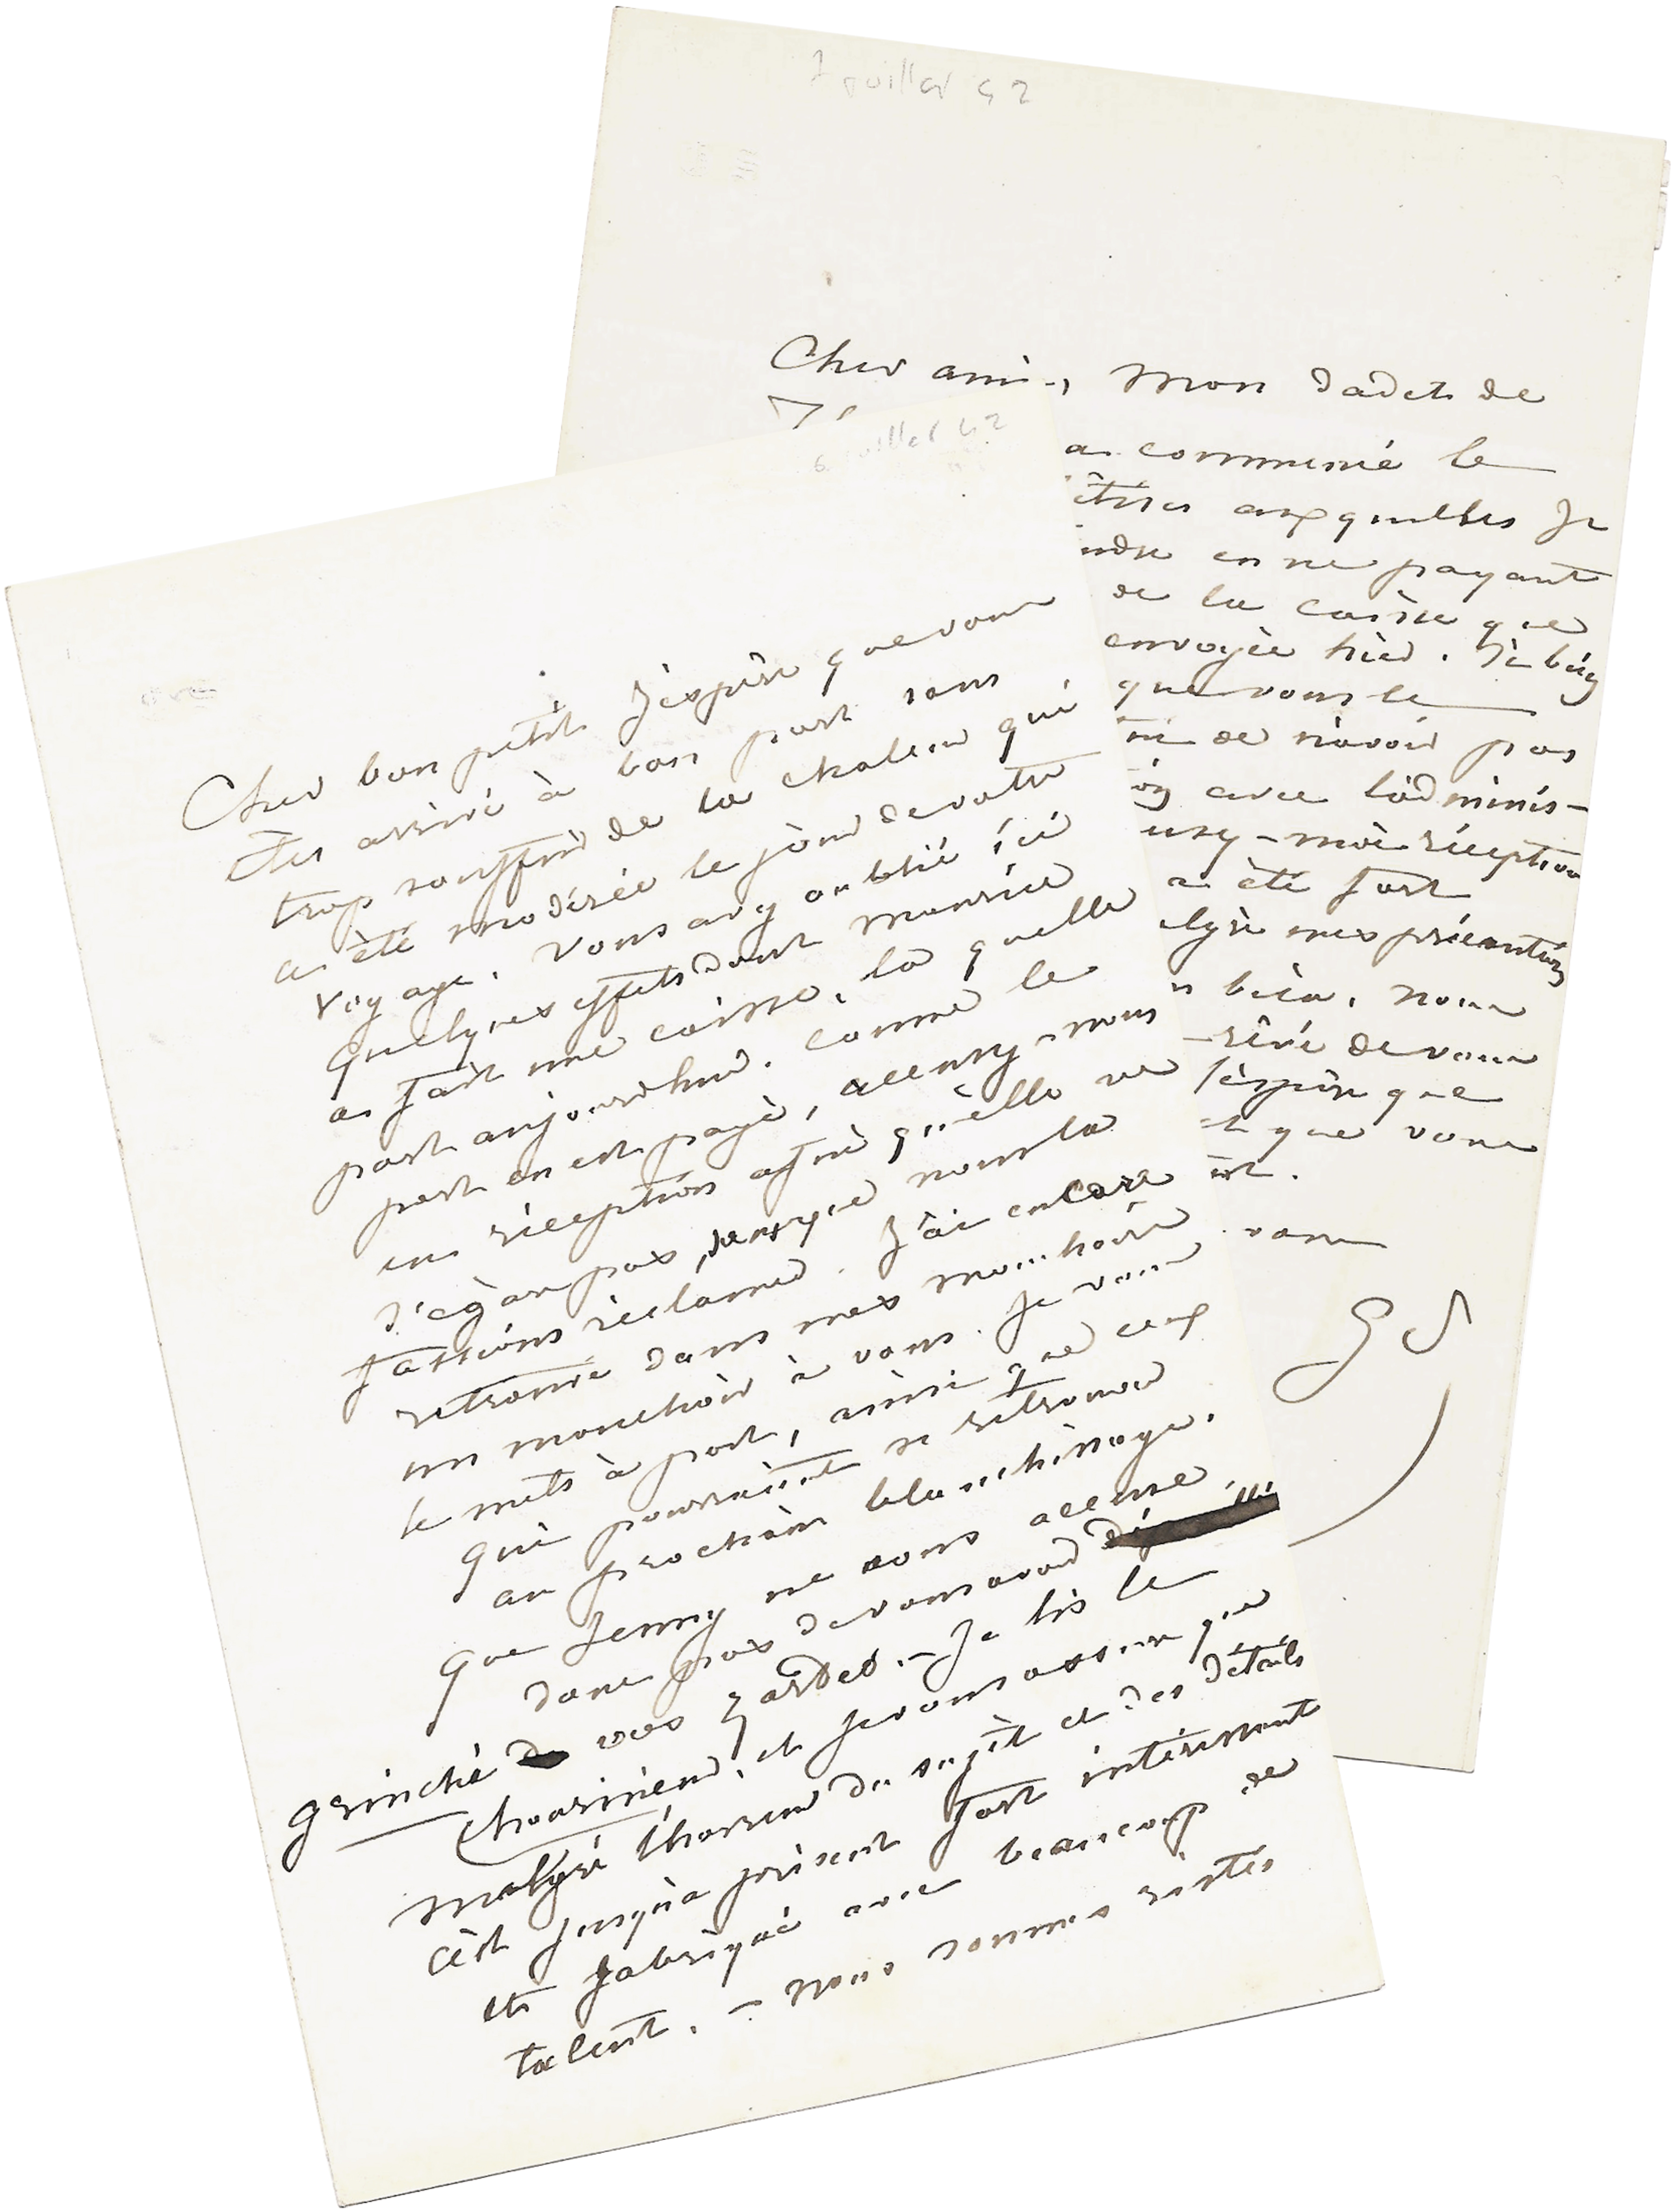 7 juillet 42
Cher ami, mon dadet de
a commencé le
auxquelles je
en ne payant
de la caisse que
envoyée hier. J'ai bien
que vous le
de n'avoir pas
avec l'adminis-
moi réception
a été fort
mes précautions
bien. nous
rêvé de vous
j'espère que
et que vous
vous
GS
6 juillet 42
Cher bon petit j'espère que vous
êtes arrivé à bon port sans
trop souffrir de la chaleur qui
a été modérée le jour de votre
voyage. vous avez oublié ici
quelques effets dont Maurice
a fait une caisse, la quelle
part aujourdhui. comme le
port en est payé, accusez-nous
en réception afin qu'elle ne
s'égare pas, sans que nous la
fassions réclamer. J'ai encore
retrouvé dans mes mouchoirs
un mouchoir à vous. Je vous
le mets à part, ainsi que ceux
qui pourraient se retrouver
au prochain blanchissage.
que Jenny ne vous accuse
donc pas de vous avoir
grinché vos hardes. - Je lis le
chourineur, et je vous assure que
malgré l'horreur du sujet et des détails
c'est jusqu'à présent fort intéressant
et fabriqué avec beaucoup de
talent. - nous sommes restés